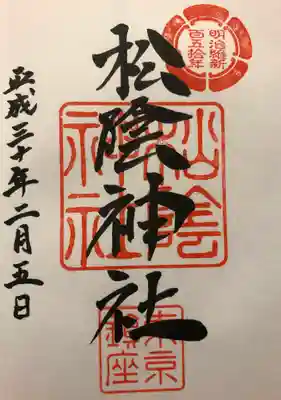 明治維新
百五拾年
松陰神社
松陰神社
東京
鎮座
平成三十年二月五日